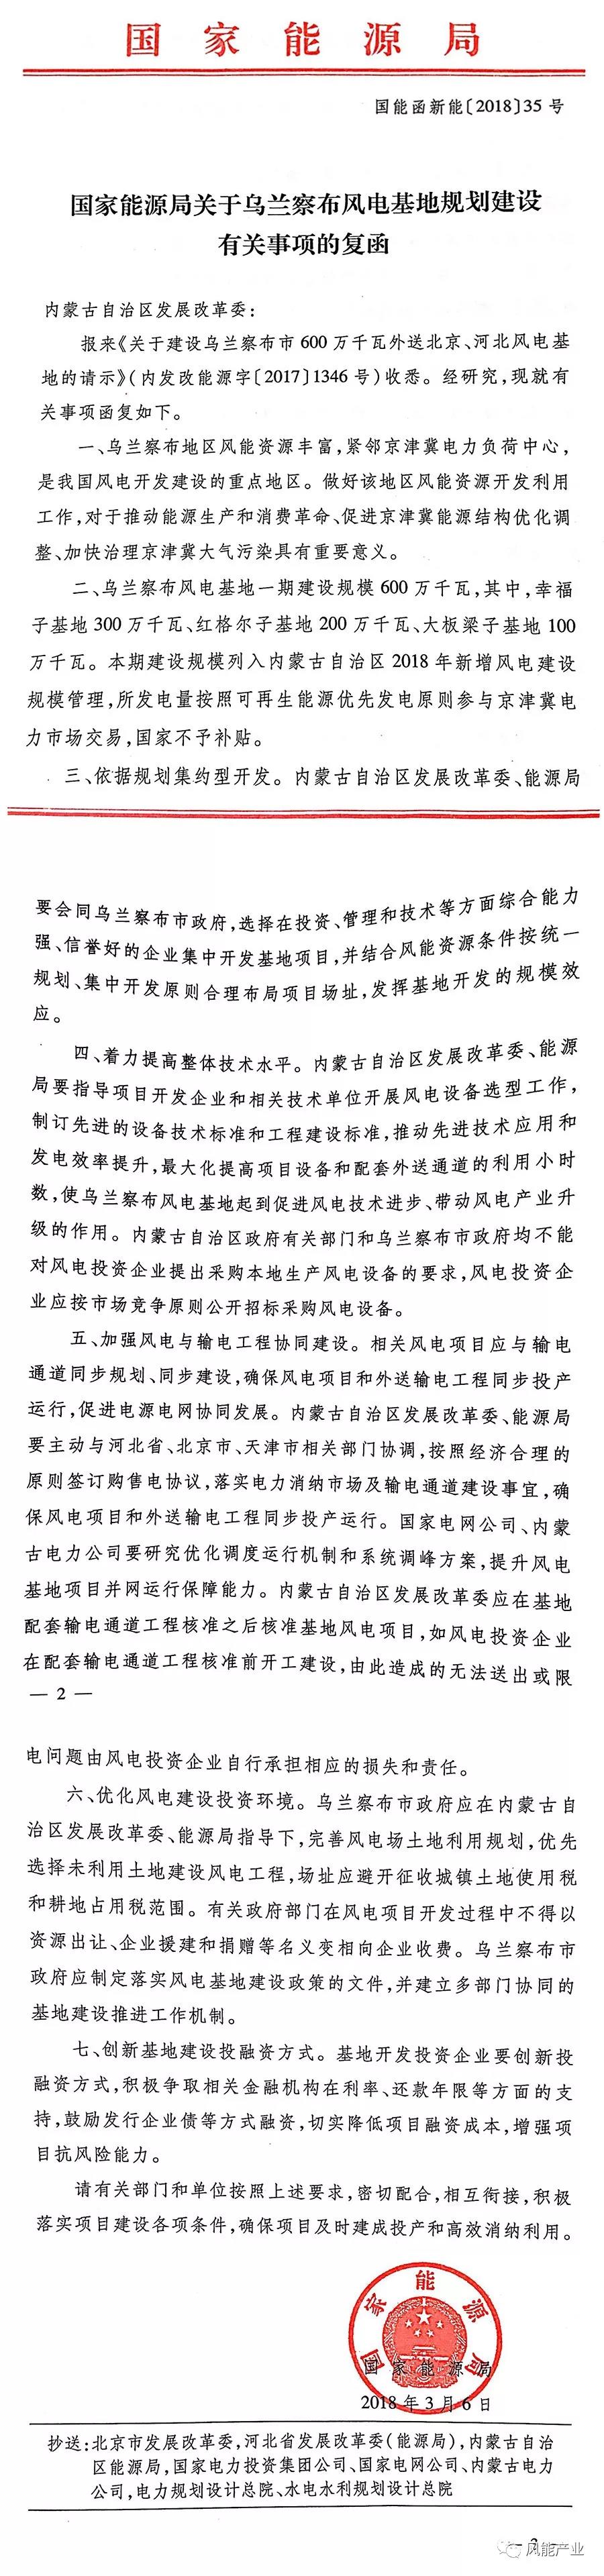 国家能源局
国能函新能〔2018〕35号
国家能源局关于乌兰察布风电基地规划建设
有关事项的复函
内蒙古自治区发展改革委:
报来《关于建设乌兰察布市600万千瓦外送北京、河北风电基
地的请示》(内发改能源字〔2017〕1346号)收悉。经研究,现就有
关事项函复如下。
一、乌兰察布地区风能资源丰富,紧邻京津冀电力负荷中心,
是我国风电开发建设的重点地区。做好该地区风能资源开发利用
工作,对于推动能源生产和消费革命、促进京津冀能源结构优化调
整、加快治理京津冀大气污染具有重要意义。
二、乌兰察布风电基地一期建设规模600万千瓦,其中,幸福
子基地300万千瓦、红格尔子基地200万千瓦、大板梁子基地100
万千瓦。本期建设规模列入内蒙古自治区2018年新增风电建设
规模管理,所发电量按照可再生能源优先发电原则参与京津冀电
力市场交易,国家不予补贴。
三、依据规划集约型开发。内蒙古自治区发展改革委、能源局
要会同乌兰察布市政府,选择在投资、管理和技术等方面综合能力
强、信誉好的企业集中开发基地项目,并结合风能资源条件按统一
规划、集中开发原则合理布局项目场址,发挥基地开发的规模效
应。
四、着力提高整体技术水平。内蒙古自治区发展改革委、能源
局要指导项目开发企业和相关技术单位开展风电设备选型工作,
制订先进的设备技术标准和工程建设标准,推动先进技术应用和
发电效率提升,最大化提高项目设备和配套外送通道的利用小时
数,使乌兰察布风电基地起到促进风电技术进步、带动风电产业升
级的作用。内蒙古自治区政府有关部门和乌兰察布市政府均不能
对风电投资企业提出采购本地生产风电设备的要求,风电投资企
业应按市场竞争原则公开招标采购风电设备。
五、加强风电与输电工程协同建设。相关风电项目应与输电
通道同步规划、同步建设,确保风电项目和外送输电工程同步投产
运行,促进电源电网协同发展。内蒙古自治区发展改革委、能源局
要主动与河北省、北京市、天津市相关部门协调,按照经济合理的
原则签订购售电协议,落实电力消纳市场及输电通道建设事宜,确
保风电项目和外送输电工程同步投产运行。国家电网公司、内蒙
古电力公司要研究优化调度运行机制和系统调峰方案,提升风电
基地项目并网运行保障能力。内蒙古自治区发展改革委应在基地
配套输电通道工程核准之后核准基地风电项目,如风电投资企业
在配套输电通道工程核准前开工建设,由此造成的无法送出或限
— 2 —
电问题由风电投资企业自行承担相应的损失和责任。
六、优化风电建设投资环境。乌兰察布市政府应在内蒙古自
治区发展改革委、能源局指导下,完善风电场土地利用规划,优先
选择未利用土地建设风电工程,场址应避开征收城镇土地使用税
和耕地占用税范围。有关政府部门在风电项目开发过程中不得以
资源出让、企业援建和捐赠等名义变相向企业收费。乌兰察布市
政府应制定落实风电基地建设政策的文件,并建立多部门协同的
基地建设推进工作机制。
七、创新基地建设投融资方式。基地开发投资企业要创新投
融资方式,积极争取相关金融机构在利率、还款年限等方面的支
持,鼓励发行企业债等方式融资,切实降低项目融资成本,增强项
目抗风险能力。
请有关部门和单位按照上述要求,密切配合,相互衔接,积极
落实项目建设各项条件,确保项目及时建成投产和高效消纳利用。
国家能源局
国家能源局
2018年3月6日
抄送:北京市发展改革委,河北省发展改革委(能源局),内蒙古自治
区能源局,国家电力投资集团公司、国家电网公司、内蒙古电力
公司,电力规划设计总院、水电水利规划设计总院
— 3 —
风能产业